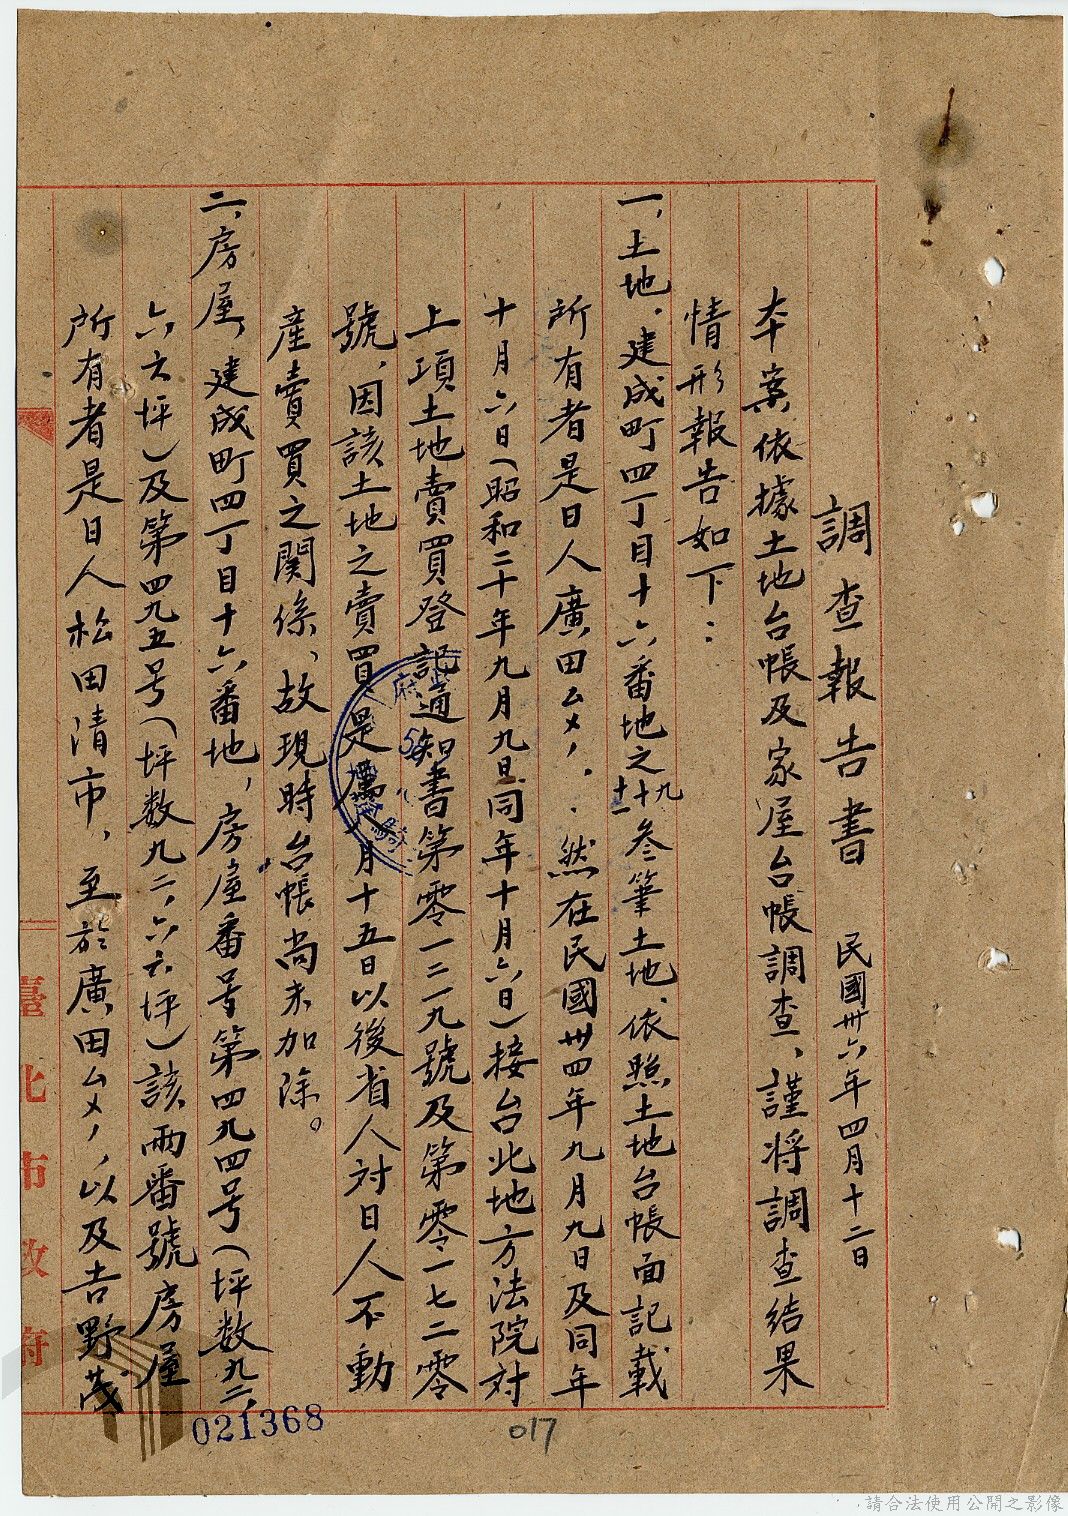 調查報告書 民國卅六年四月十二日
本案依據土地台帳及家屋台帳調查、謹將調查結果
情形報告如下：
一、土地、建成町四丁目十六番地之九、十、十一叁筆土地、依照土地台帳面記載
所有者是日人廣田ムメ，然在民國卅四年九月九日及同年
十月六日（昭和二十年九月九日同年十月六日）接台北地方法院対
上項土地賣買登記通知書第零一二一九號及第零一七二零
號、因該土地之賣買是屬八月十五日以後省人対日人不動
產賣買之関係、故現時台帳尚未加除。
二、房屋、建成町四丁目十六番地，房屋番号第四九四号（坪数九二，
六六坪）及第四九五号（坪数九二，六六坪）該両番號房屋
所有者是日人松田清市，至於廣田ムメ，以及吉野茂
臺北市政府
021368
017
請合法使用公開之影像